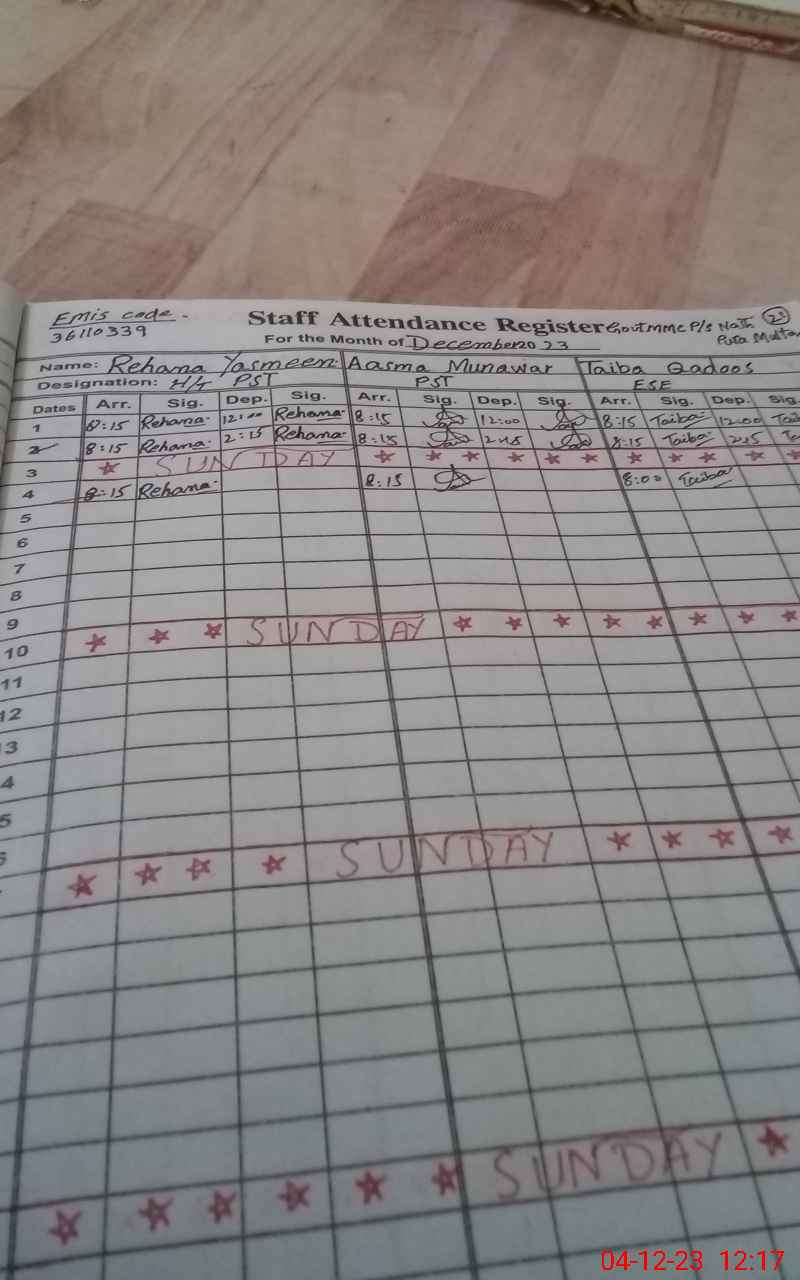 Emis code -
36110339
Staff Attendance Register Govt mmc P/s Nath
23
Pura Multan
For the Month of December 2023
Name: Rehana Yasmeen Aasma Munawar Taiba Qadoos
Designation: H/T PST PST ESE
Dates Arr. Sig. Dep. Sig. Arr. Sig. Dep. Sig. Arr. Sig. Dep. Sig.
1 8:15 Rehana 12:00 Rehana 8:15 12:00 8:15 Taiba 12:00
2 8:15 Rehana 2:15 Rehana 8:15 2:15 8:15 Taiba 2:15
3 SUNDAY
4 8:15 Rehana 8:15 8:00 Taiba
5
6
7
8
9
10 SUNDAY
11
12
3
4
5
6
SUNDAY
SUNDAY
04-12-23 12:17